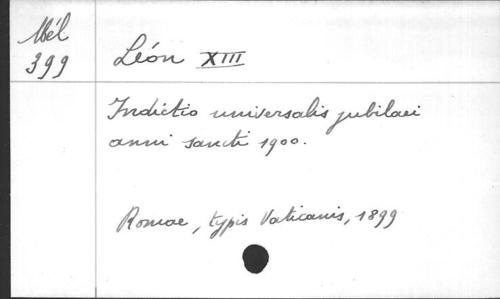 Mél
399
Léon XIII
Indictio universalis jubilaei
anni sancti 1900.
Romae, typis Vaticanis, 1899